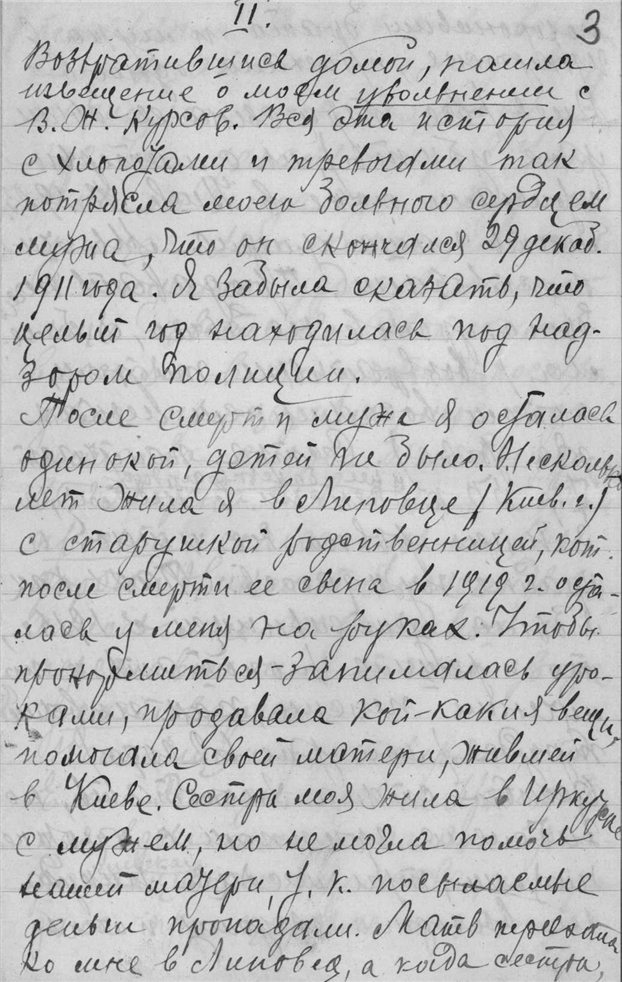 II.
3
Возвратившись домой, нашла
извещение о моем увольнении с
В. Ж. Курсов. Вся эта история
с хлопотами и тревогами так
потрясла моего больного сердцем
мужа, что он скончался 29 декаб.
1911 года. Я забыла сказать, что
целый год находилась под над-
зором полиции.
После смерти мужа я осталась
одинокой, детей не было. Несколько
лет жила я в Липовце (Киев. г.)
с старушкой родственницей, кот.
после смерти ее сына в 1919 г. оста-
лась у меня на руках. Чтобы
прокормиться - занималась уро-
ками, продавала кой-какия вещи,
помогала своей матери, жившей
в Киеве. Сестра моя жила в Иркутске
с мужем, но не могла помочь
нашей матери, т. к. посылаемые
деньги пропадали. Мать переехала
ко мне в Липовец, а когда сестра,